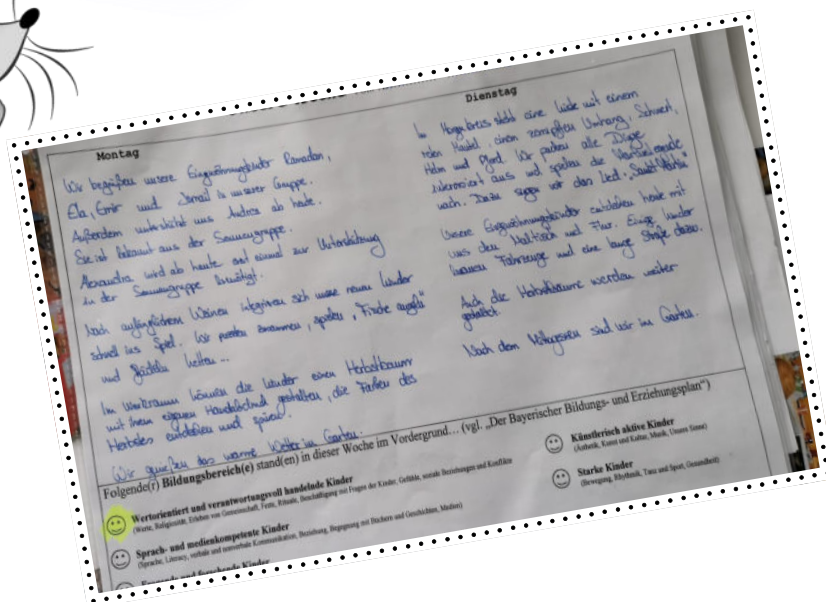 Montag
Wir begrüßen unsere Eingewöhnungskinder Ramadan,
Ela, Emir und Ismail in unserer Gruppe.
Außerdem unterstützt uns Andrea ab heute.
Sie ist bekannt aus der Sonnengruppe.
Alexandra wird ab heute erst einmal zur Unterstützung
in der Sonnengruppe benötigt.
Nach anfänglichem Weinen integrieren sich unsere neuen Kinder
schnell ins Spiel. Wir puzzeln zusammen, spielen „Fische angeln“
und fädeln Ketten...
Im können die Kinder einen Herbstbaum
mit ihrem eigenen Handabdruck gestalten, die Farben des
Herbstes entdecken und spüren.
Wir genießen das warme Wetter im Garten.
Dienstag
Im Morgenkreis steht eine Kiste mit einem
roten Mantel, einem Umhang, Schwert,
Helm und Pferd. Wir packen alle Dinge
interessiert aus und spielen die
nach. Dazu singen wir das Lied „Sankt Martin“
Unsere Eingewöhnungskinder entdecken heute mit
uns den Maltisch und Flur. Einige Kinder
bauen Fahrzeuge und eine lange Straße dazu.
Auch die Herbstbäume werden weiter
gestaltet.
Nach dem Mittagessen sind wir im Garten.
Folgende(r) Bildungsbereich(e) stand(en) in dieser Woche im Vordergrund… (vgl. „Der Bayerischer Bildungs- und Erziehungsplan“)
Wertorientiert und verantwortungsvoll handelnde Kinder
(Werte, Religiosität, Erleben von Gemeinschaft, Feste, Rituale, Beschäftigung mit Fragen der Kinder, Gefühle, soziale Beziehungen und Konflikte
Sprach- und medienkompetente Kinder
(Sprache, Literacy, verbale und nonverbale Kommunikation, Beziehung, Begegnung mit Büchern und Geschichten, Medien)
forschende Kinder
Künstlerisch aktive Kinder
(Ästhetik, Kunst und Kultur, Musik, Unsere Sinne)
Starke Kinder
(Bewegung, Rhythmik, Tanz und Sport, Gesundheit)